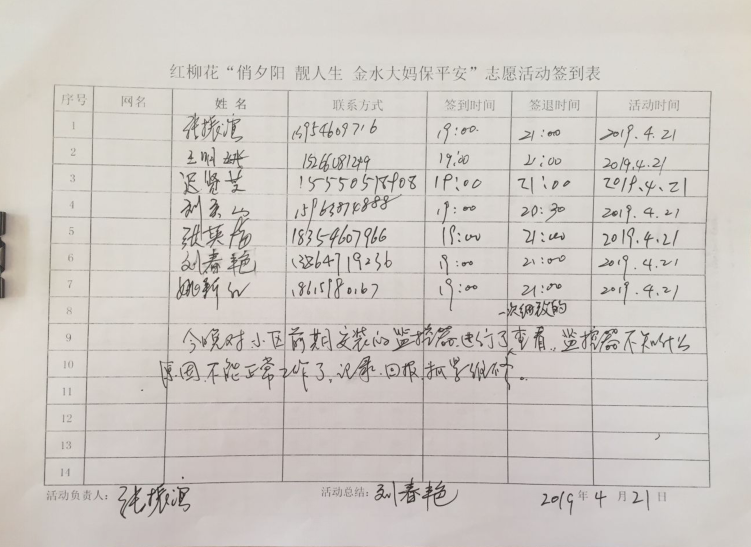 红柳花“俏夕阳 靓人生 金水大妈保平安”志愿活动签到表
序号 网名 姓名 联系方式 签到时间 签退时间 活动时间
1 张振滨 19:00 21:00 2019.4.21
2 王明 19:00 21:00 2019.4.21
3 迟贤 15550517908 19:00 21:00 2019.4.21
4 刘 15963874888 19:00 20:30 2019.4.21
5 张英 18354607966 19:00 21:00 2019.4.21
6 刘春艳 13864719236 19:00 21:00 2019.4.21
7 姚新 18615980167 19:00 21:00 2019.4.21
8 一次细致的
9 今晚对小区前期安装的监控器进行了查看,监控器不知什么
10 原因,不能正常工作了,记录,回报,维修。
11
12
13
14
活动负责人:张振滨 活动总结:刘春艳 2019年4月21日